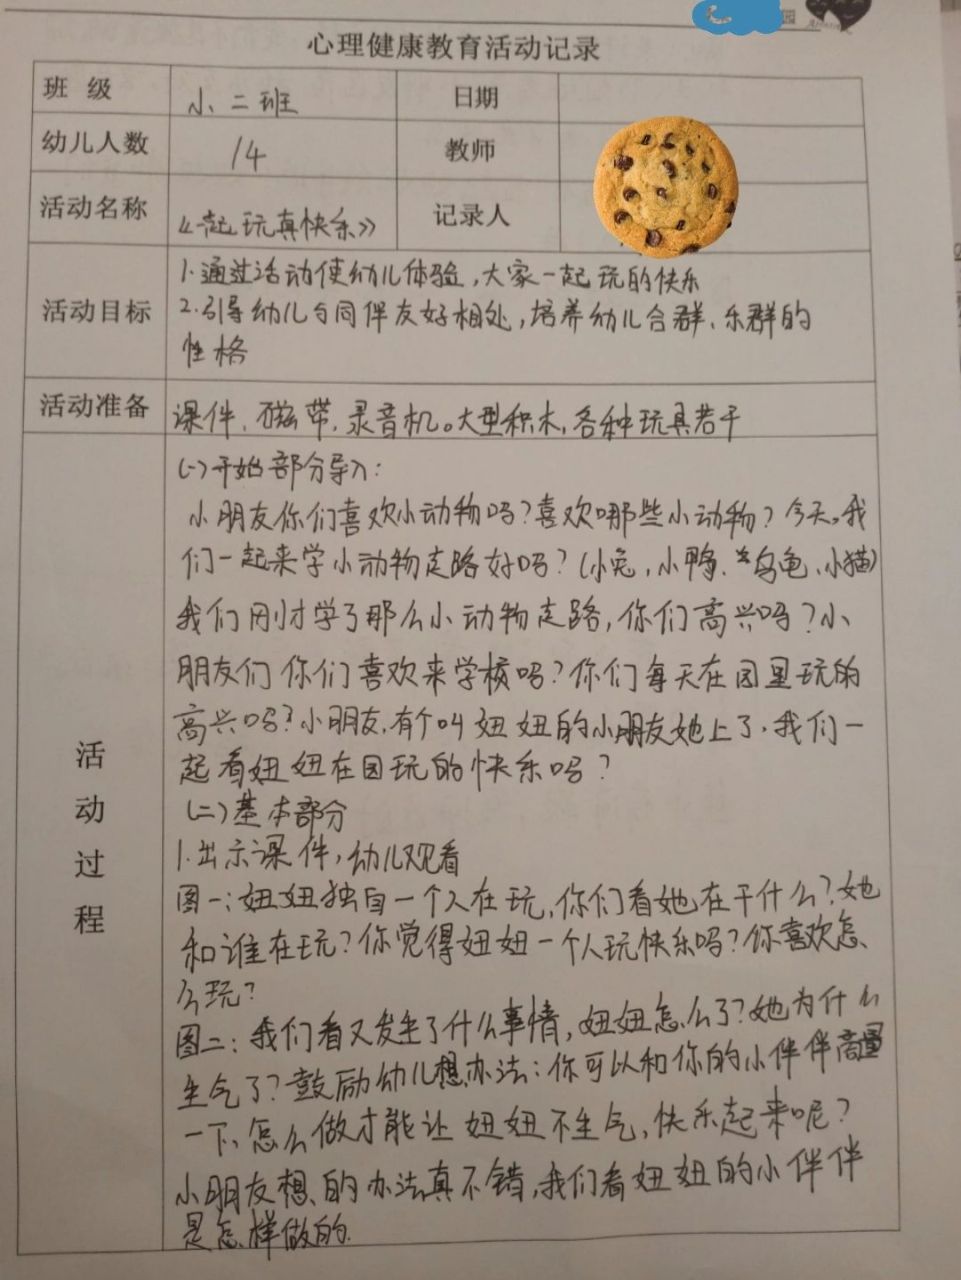 园
心理健康教育活动记录
班 级 小二班 日期
幼儿人数 14 教师
活动名称 《一起玩真快乐》 记录人
活动目标 1.通过活动使幼儿体验,大家一起玩的快乐
2.引导幼儿与同伴友好相处,培养幼儿合群、乐群的
性格
活动准备 课件、磁带、录音机。大型积木,各种玩具若干
活动过程
(一)开始部分导入:
小朋友你们喜欢小动物吗?喜欢哪些小动物?今天,我
们一起来学小动物走路好吗?(小兔,小鸭、乌龟、小猫)
我们刚才学了那么小动物走路,你们高兴吗?小
朋友们你们喜欢来学校吗?你们每天在园里玩的
高兴吗?小朋友,有个叫妞妞的小朋友她上了,我们一
起看妞妞在园玩的快乐吗?
(二)基本部分
1.出示课件,幼儿观看
图一:妞妞独自一个人在玩,你们看她在干什么?她
和谁在玩?你觉得妞妞一个人玩快乐吗?你喜欢怎
么玩?
图二:我们看又发生了什么事情,妞妞怎么了?她为什么
生气了?鼓励幼儿想办法:你可以和你的小伴伴商量
一下,怎么做才能让妞妞不生气,快乐起来呢?
小朋友想的办法真不错,我们看妞妞的小伴伴
是怎样做的.